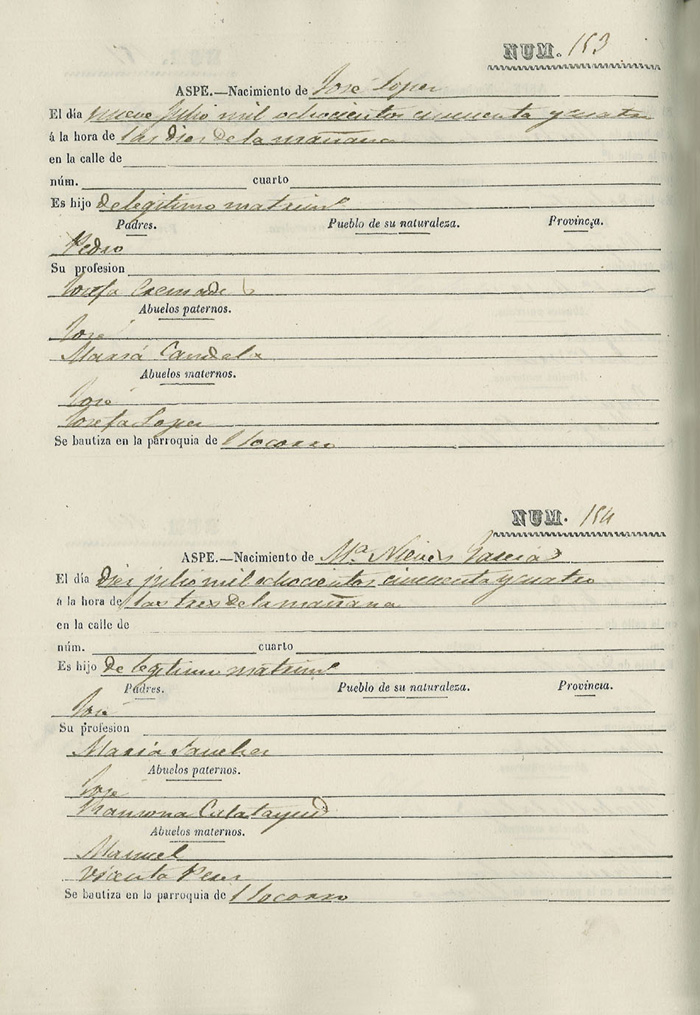 NUM. 153
ASPE.—Nacimiento de José Loper
El día nueve julio mil ochocientos cincuenta y cuatro
á la hora de las dies de la mañana
en la calle de
núm. cuarto
Es hijo de legitimo matriml
Padres. Pueblo de su naturaleza. Provincia.
Pedro
Su profesion
Josefa Cremade
Abuelos paternos.
José
Maria Candela
Abuelos maternos.
José
Josefa Loper
Se bautiza en la parroquia de l Socorro
NUM. 154
ASPE.—Nacimiento de Mª Nieves Garcia
El día dies julio mil ochocientos cincuenta y cuatro
á la hora de las tres de la mañana
en la calle de
núm. cuarto
Es hijo de legitimo matriml
Padres. Pueblo de su naturaleza. Provincia.
José
Su profesion
Maria Sancher
Abuelos paternos.
José
Ramona Calatayud
Abuelos maternos.
Manuel
Vicenta Perer
Se bautiza en la parroquia de l Socorro